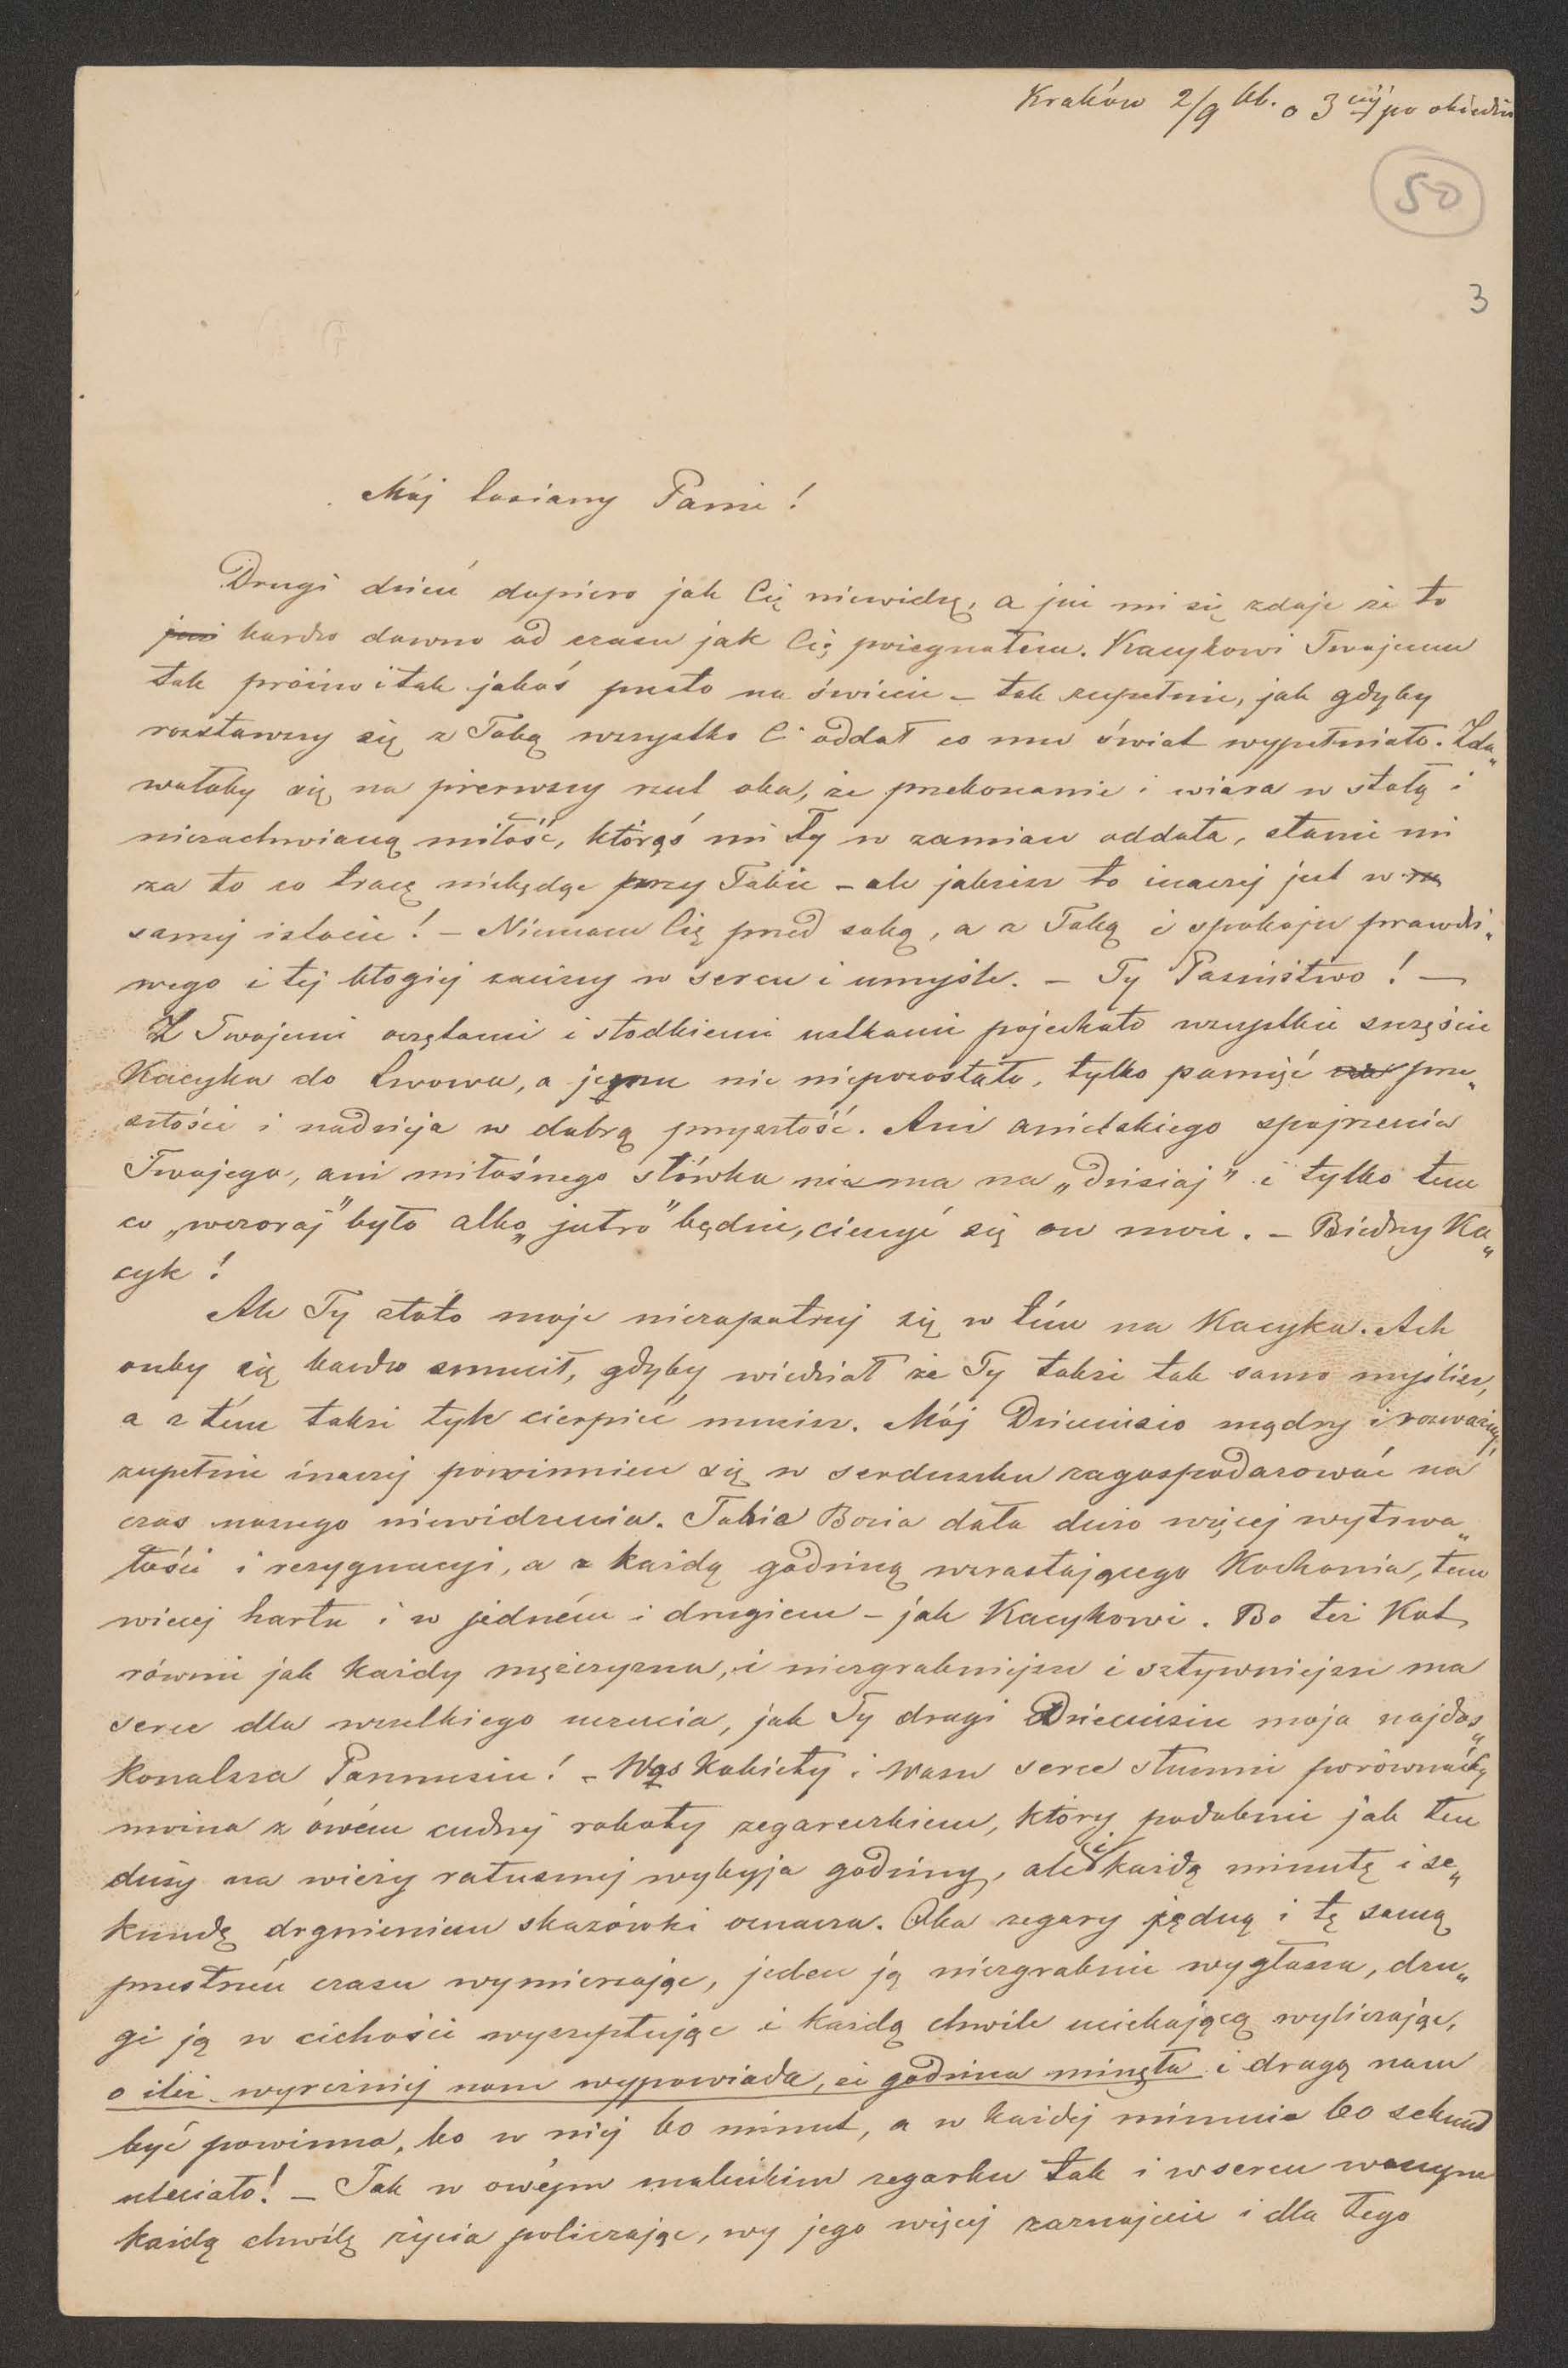 Kraków 2/9 bb. o 3ciéj po obiedzie
50
3
Mój Panie!
Drugi dzień dopiero jak Cię niewidzę, a już mi się zdaje że to
już bardzo dawno od czasu jak Cię pożegnałem. Kacykowi Twojemu
tak próżno i tak jakoś pusto na świecie – tak zupełnie, jak gdyby
rozstawszy się z Tobą wszystko Ci oddał co mu świat wypełniało. Zda„
wałoby się na pierwszy rzut oka, że przekonanie i wiara w stałą i
niezachwianą miłość, którąś mi Ty w zamian oddała, stanie mi
za to co tracę niebędąc przy Tobie – ale jakżesz to inaczej jest w
samej istocie! – Niemam Cię przed sobą, a z Tobą i spokoju prawdzi„
wego i tej błogiej zaciszy w sercu i umyśle. – Ty Państwo! –
Z Twojemi oczętami i słodkiemi ustkami pojechało wszystkie szczęście
Kacyka do Lwowa, a jemu nic niepozostało, tylko pamięć prze„
szłości i nadzieja w dobrą przyszłość. Ani anielskiego spojrzenia
Twojego, ani miłośnego słówka niema na „dzisiaj” i tylko tem
co „wczoraj” było albo „jutro” będzie, cieszyć się on może. – Biedny Ka„
cyk!
Ale Ty złoto moje niezapatruj się w tém na Kacyka. Ach
onby się bardzo smucił, gdyby wiedział że Ty także tak samo myślisz,
a z tém także tyle cierpieć musisz. Mój Dzieciusio mądry i rozważny,
zupełnie inaczej powinnien się w serduszku zagospodarować na
czas naszego niewidzenia. Tobie Bozia dała dużo więcej wytrwa„
łości i rezygnacyi, a z każdą godziną wzrastającego Kochania, tem
wiecej hartu i w jedném i drugiem – jak Kacykowi. Bo też Kot
równie jak każdy mężczyzna, i niezgrabniejsze i sztywniejsze ma
serce dla wszelkiego uczucia, jak Ty drogi Dzieciusiu moja najdos„
konalsza Pannusiu! – Was Kobiéty i Wasze serce słusznie porównaćby
można z ówém cudnej roboty zegareczkiem, który podobnie jak ten
duży na wieży ratusznej wybyja godziny, ale i każdą minutę i se„
kundę drgnieniem skazówki oznacza. Oba zegary jędną i tę samą
przestrzeń czasu wymierzając, jeden ją niezgrabnie wygłasza, dru„
gi ją w cichości wyszeptując i każdą chwile uciekającą wyliczając,
o ileż wyrczniej nam wypowiada, że godzina minęła i drugą nam
być powinna, bo w niej 60 minut, a w każdej minucie 60 sekund
uleciało! – Jak w owéym maleńkim zegarku tak i w sercu waszym
każdą chwilę życia policzając, wy jego więcej zaznajecie i dla tego